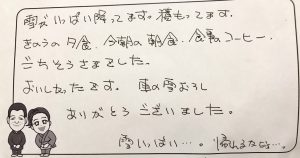 雪がいっぱい降ってます。積もってます。
きのうの夕食、今朝の朝食、食事のコーヒー、
ごちそうさまでした。
よいしかったです。車の雪おろし
ありがとうございました。
雪いっぱい…。帰れるかな…。